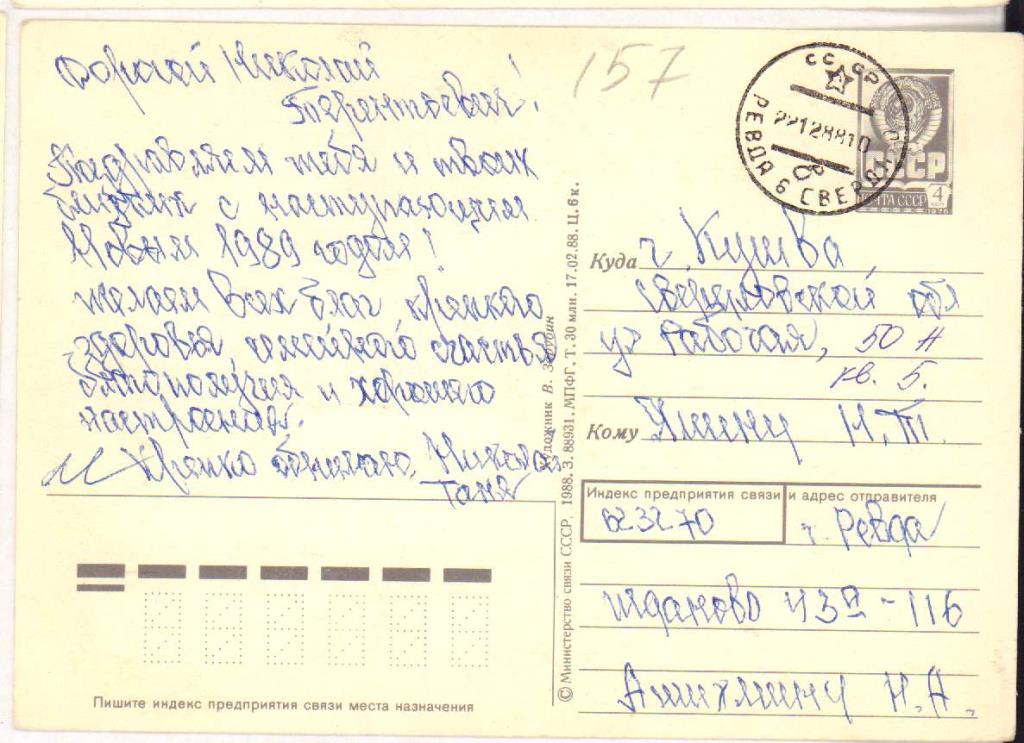 Дорогой Николай
Терентьевич!
Поздравляем тебя и твоих
близких с наступающим
Новым 1989 годом!
желаем всех благ крепкого
здоровья, семейного счастья
благополучия и хорошего
настроения.
Крепко обнимаю. Николай
Таня
157
СССР
РЕВДА 6 СВЕРДЛ
22128810
СССР
ПОЧТА СССР
4 коп
1976
Куда г. Кушва
Свердловской обл
ул Рабочая, 50 А
кв. 5.
Кому Яшину Н.Т.
Индекс предприятия связи и адрес отправителя
623270 г. Ревда
жданово 43а - 116
Ашихмину Н.А.
Пишите индекс предприятия связи места назначения
Художник В. Зарубин
© Министерство связи СССР, 1988. З. 88931. МПФГ. Т. 30 млн. 17.02.88. Ц. 6 к.